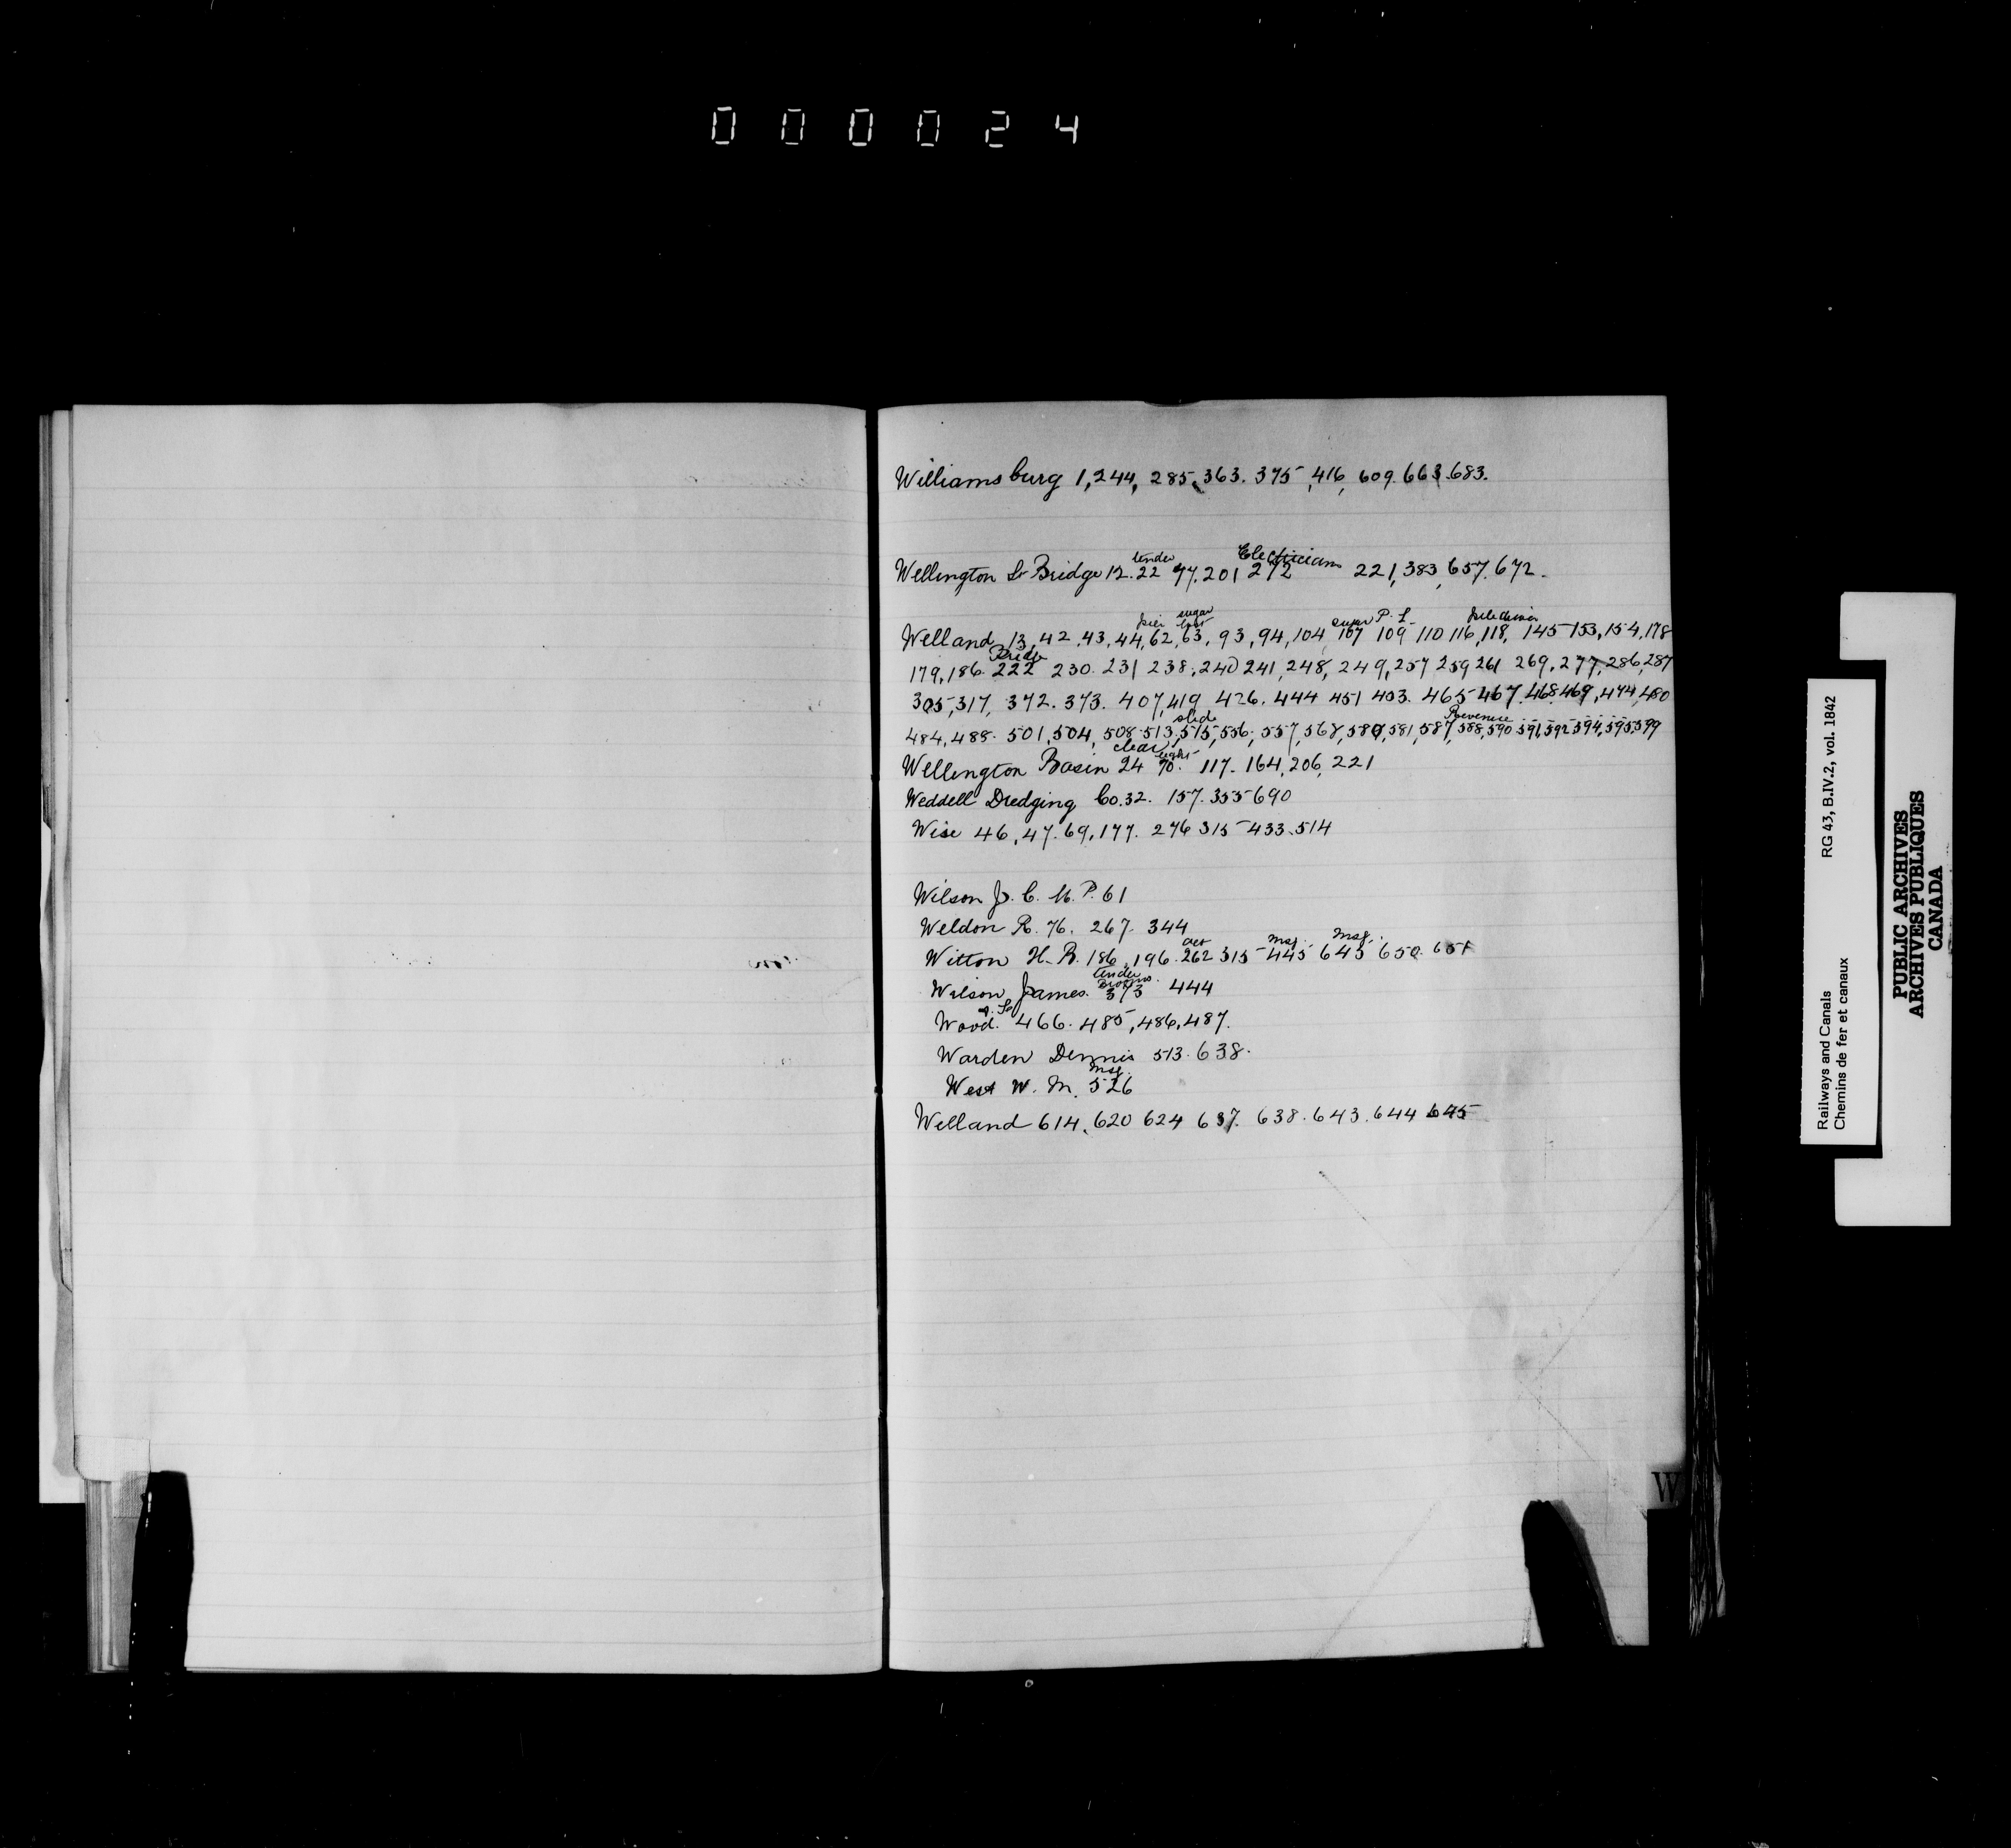 000024
Williamsburg 1, 244, 285, 363. 375, 416, 609. 663. 683.
tender Electrician
Wellington St Bridge 12. 22 77. 201 272 221, 383, 657. 672.
pier sugar boat sugar P. L. pile driver
Welland 13, 42, 43, 44, 62, 63, 93, 94, 104, 107 109 110 116, 118, 145 153, 154, 178
Bridge
179, 186. 222 230. 231 238, 240 241, 248, 249, 257 259 261 269, 277, 286, 287
305, 317, 372. 373. 407, 419 426. 444 451 403. 465 467. 468. 469, 474, 480
slide Revenue
484, 488. 501, 504, 508. 513, 515, 556, 557, 568, 580, 581, 587, 588, 590 591, 592 594, 595, 599
clear light
Wellington Basin 24 70. 117. 164, 206, 221
Weddell Dredging Co. 32. 157. 355 690
Wise 46, 47. 69, 177. 276 315 433. 514
Wilson J. C. M. P. 61
Weldon R. 76. 267. 344
act msg. msg.
Witton H. B. 186, 196. 262 315 445 645 650. 651
tender
Wilson James. 373 444
Wood. 466. 485, 486, 487.
Warden Dennis 513. 638.
msg.
West W. M. 526
Welland 614, 620 624 637. 638. 643. 644 645
W
Railways and Canals RG 43, B.IV.2, vol. 1842
Chemins de fer et canaux
PUBLIC ARCHIVES
ARCHIVES PUBLIQUES
CANADA